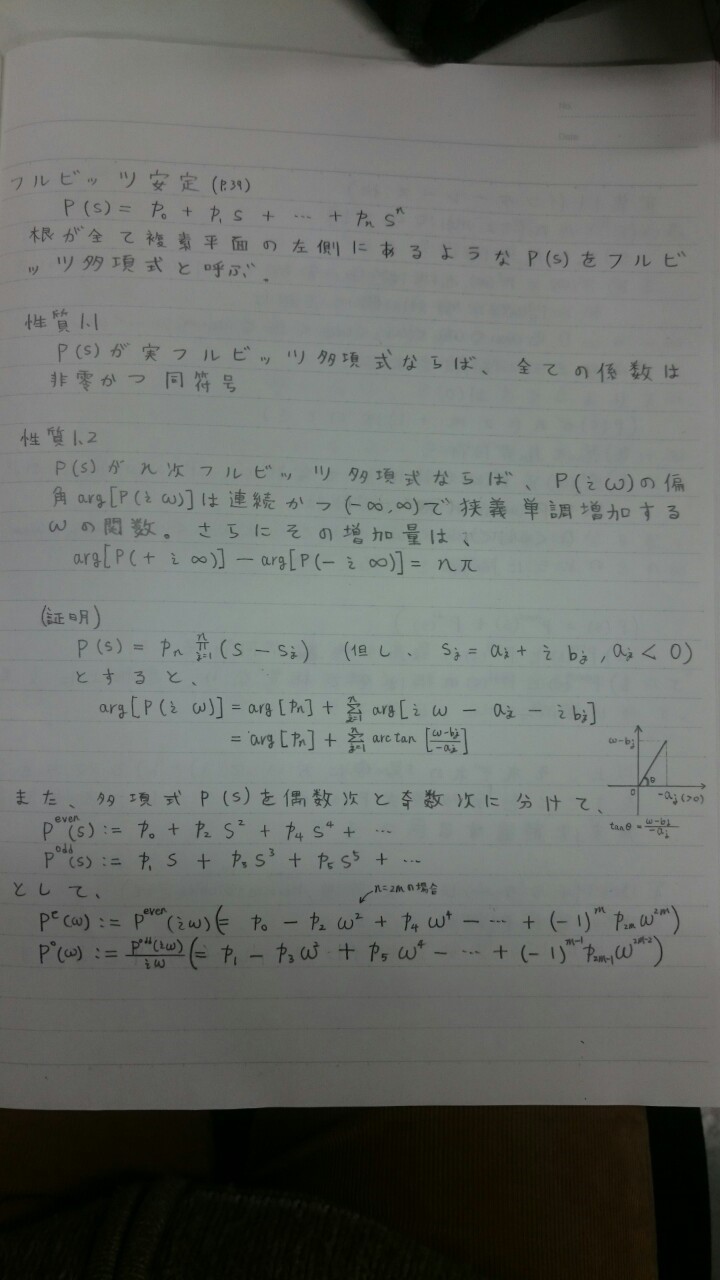 フルビッツ安定 (P.39)
P(s) = p₀ + p₁ s + … + pₙ sⁿ
根が全て複素平面の左側にあるような P(s) をフルビ
ッツ多項式と呼ぶ.
性質1.1
P(s) が実フルビッツ多項式ならば、全ての係数は
非零かつ同符号
性質1.2
P(s) が n次フルビッツ多項式ならば、P(iω)の偏
角 arg[P(iω)] は連続かつ (-∞,∞) で狭義単調増加する
ωの関数。さらにその増加量は、
arg[P(+i∞)] − arg[P(−i∞)] = nπ
(証明)
P(s) = pₙ ∏ⁿⱼ₌₁ (s − sⱼ) (但し、sⱼ = aⱼ + i bⱼ, aⱼ < 0)
とすると、
arg[P(iω)] = arg[pₙ] + Σⁿⱼ₌₁ arg[iω − aⱼ − i bⱼ]
= arg[pₙ] + Σⁿⱼ₌₁ arctan [(ω−bⱼ)/(−aⱼ)]
ω−bⱼ
θ
0
−aⱼ (>0)
tanθ = (ω−bⱼ)/(−aⱼ)
また、多項式 P(s) を偶数次と奇数次に分けて、
P^even(s) := p₀ + p₂ s² + p₄ s⁴ + …
P^odd(s) := p₁ s + p₃ s³ + p₅ s⁵ + …
として、
n=2mの場合
P^e(ω) := P^even(iω) (= p₀ − p₂ ω² + p₄ ω⁴ − … + (−1)^m p₂ₘ ω^2m)
P^o(ω) := P^odd(iω)/iω (= p₁ − p₃ ω² + p₅ ω⁴ − … + (−1)^m-1 p₂ₘ₋₁ ω^2m-2)